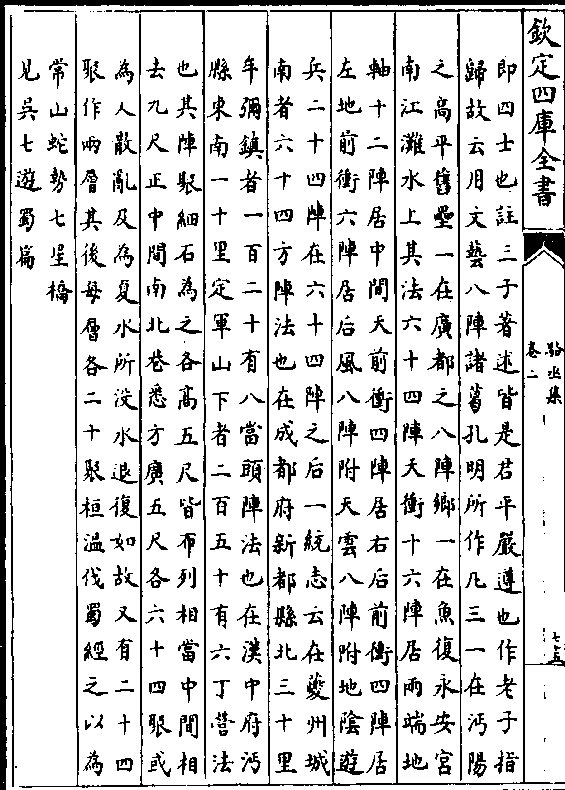 欽定四庫全書
駱丞集
卷二
即四士也註三子著述皆是君平嚴遵也作老子指
歸故云用文藝八陣諸葛孔明所作凡三一在沔陽
之高平舊壘一在廣都之八陣鄉一在魚復永安宮
南江灘水上其法六十四陣天衝十六陣居兩端地
軸十二陣居中間天前衝四陣居右后前衝四陣居
左地前衝六陣居后風八陣附天雲八陣附地陰遊
兵二十四陣在六十四陣之后一統志云在夔州城
南者六十四方陣法也在成都府新都縣北三十里
年彌鎮者一百二十有八當頭陣法也在漢中府沔
縣東南一十里定軍山下者二百五十有六丁營法
也其陣聚細石為之各高五尺皆布列相當中間相
去九尺正中間南北巷悉方廣五尺各六十四聚或
為人散亂及為夏水所没水退復如故又有二十四
聚作兩層其後每層各二十聚桓温伐蜀經之以為
常山蛇勢七星橋
見吳七遊蜀篇